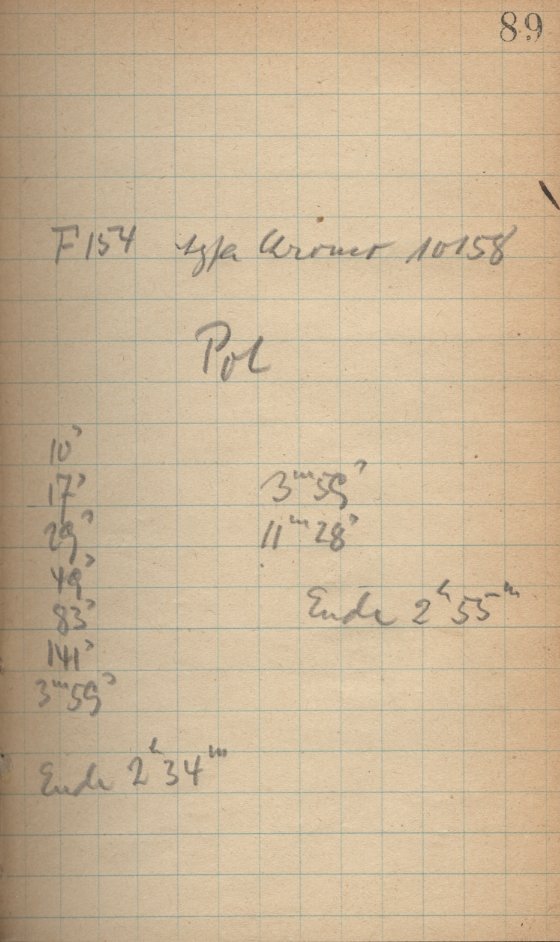 89
F154 Agfa Chromo 10158
Pol
10ˢ
17ˢ
29ˢ
49ˢ
83ˢ
141ˢ
3ᵐ59ˢ
Ende 2ʰ34ᵐ
3ᵐ59ˢ
11ᵐ28ˢ
Ende 2ʰ55ᵐ